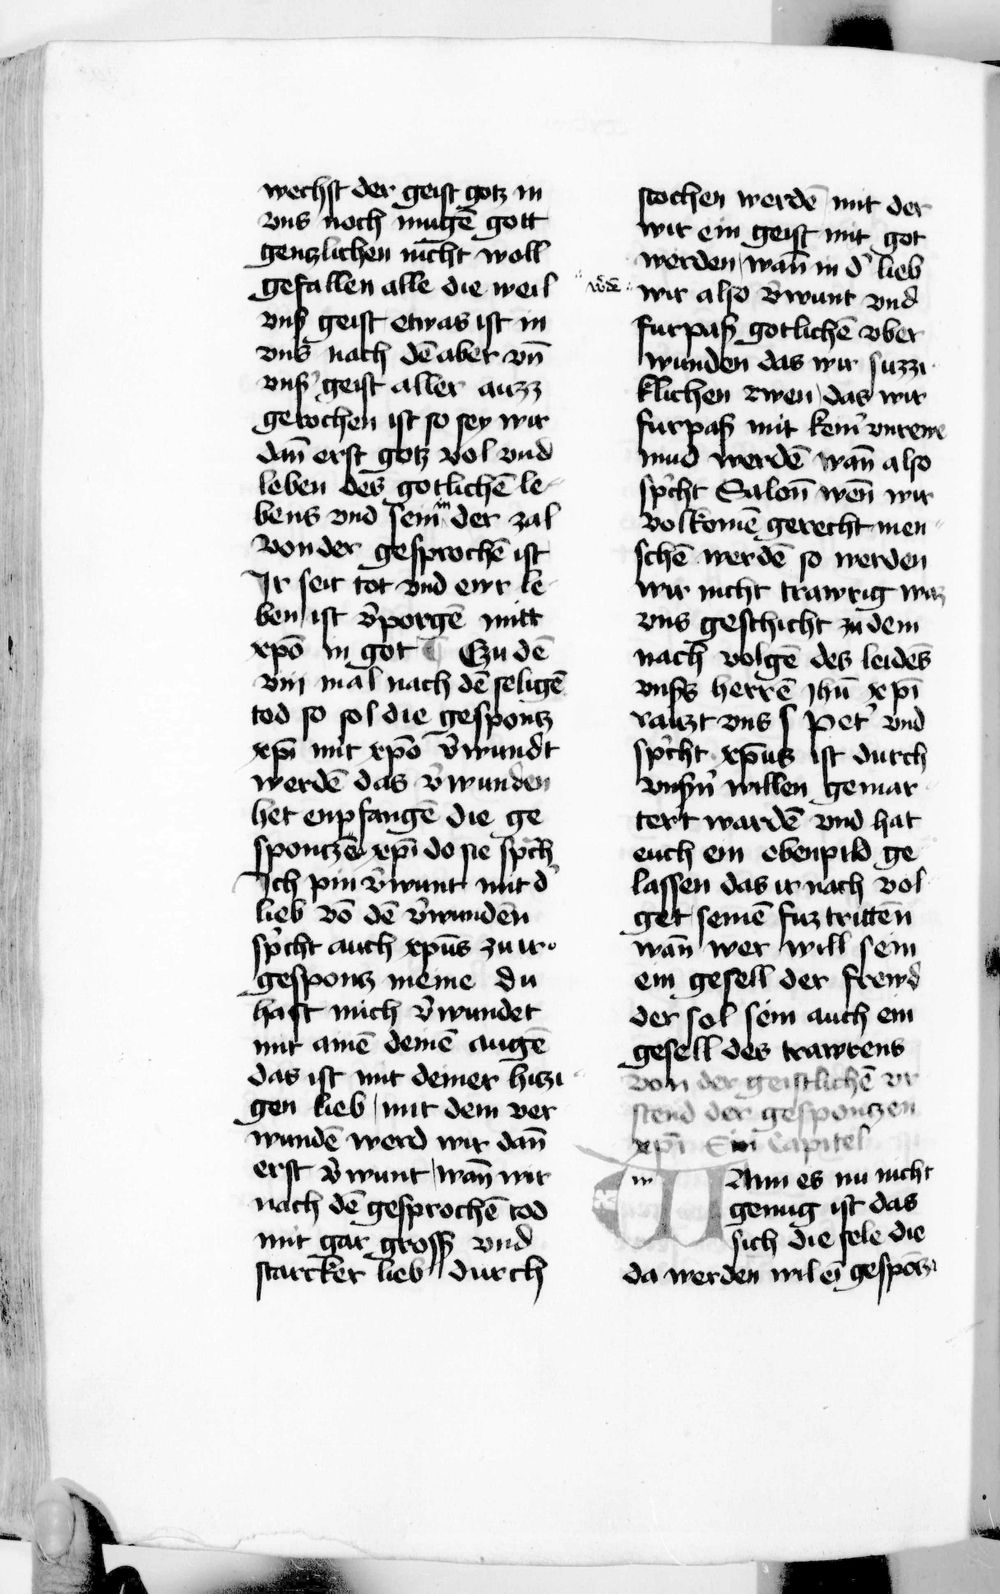 wechst der geist gotz in
vns noch mugē gott
gentzlichen nicht woll
gefallen alle die weil
vnß geist etwas ist in
vns nach dē aber vn̄
vnß geist aller auzz
gerochen ist so sey wir
dan̄ erst gotz vol vnd
leben des gotlichē le-
bens vnd sein in der zal
von der gesprochē ist
Ir seit tot vnd ewr le-
ben ist v̓porgē mitt
xpō in got ¶ Czu dē
viij mal nach dē seligē
tod so sol die gespontz
xpī mit xpō v̓wundt
werdē das v̓wunden
het enpfangē die ge
spontzē xpī do sie sp̓ch
Ich pin v̓wunt mit d̓
lieb vō dē v̓wundēn
sp̓cht auch xpūs zu ir
gespontz meine du
hast mich v̓wundet
mit ainē deinē augē
das ist mit deiner hitzi
gen lieb / mit dem ver
wundē werd wir dan̄
erst v̓wunt / wan̄ wir
nach dē gesprochē tod
mit gar grosß vnd
starcker lieb durch
stochen werdē mit der
wir ein geist mit got
werden / wan̄ in d̓ lieb
wir also v̓wunt vnd
furpaß gotlichē vber
wunden das wir suzzi
klichen rwen / das wir
furpaß mit kein̓ vnrewe
mud werdē wan̄ also
sp̓cht Salon̄ wen̄ wir
volkomē gerecht men
schē werdē so werden
wir nicht trawrig waz
vns geschicht zu dem
nach volgē des leidēs
vnsß herrē Jhū xpī
raitzt vns S Pet̓ vnd
sp̓cht xpūs ist durch
vnsn̓ willen gemar
tert wardē vnd hat
euch ein ebenpild ge
lassen das ir nach vol
get seinē fuztrittēn
wan̄ wer will sein
ein gesell der frewd
der sol sein auch ein
gesell des trawrens
von der geistlichē vr
stend der gespontzen
xpī Ein Capitel
Ann es nu nicht
genug ist das
sich die sele die
da werden wil ei gespōtz